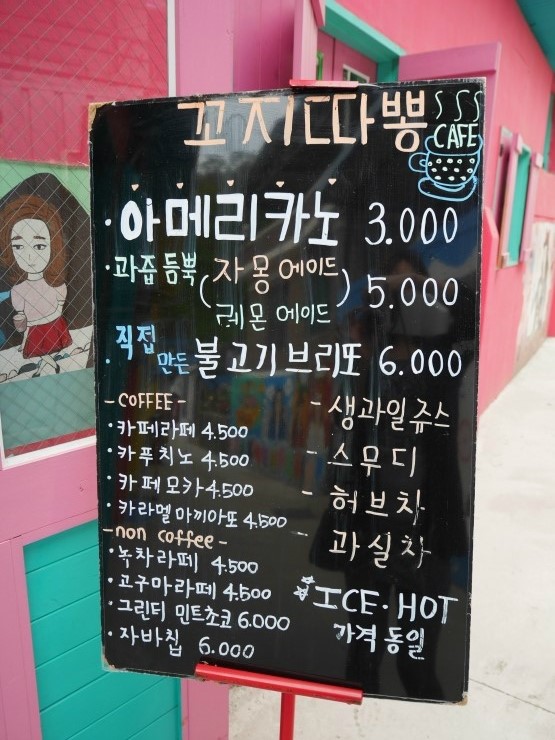 꼬지따뽕
CAFE
·아메리카노 3.000
·과즙듬뿍 (자몽에이드
레몬에이드) 5.000
·직접만든 불고기브리또 6.000
-COFFEE-
·카페라페 4.500
·카푸치노 4.500
·카페모카 4.500
·카라멜마끼아또 4.500
-non coffee-
·녹차라페 4.500
·고구마라페 4.500
·그린티 민트초코 6.000
·자바칩 6.000
-생과일쥬스
-스무디
-허브차
-과실차
ICE·HOT
가격동일